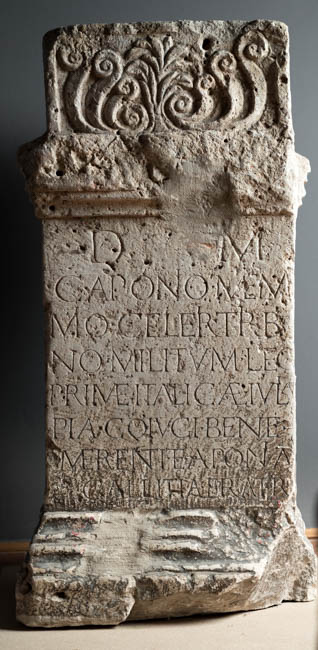 D M
G APONO MEM
MO CELERI TRIB
NO MILITVM LEG
PRIME ITALICAE IVL
PIA COIVGI BENE
MERENTE APONIA